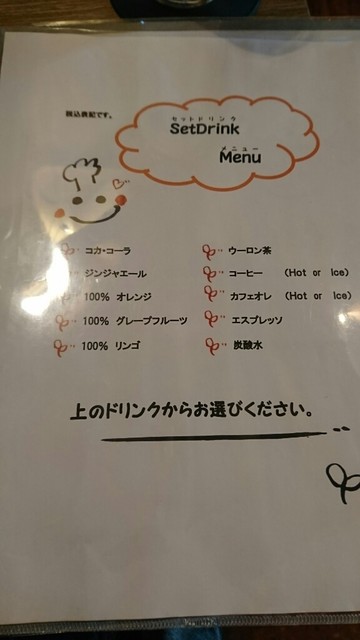 税込表記です。
セットドリンク
SetDrink
メニュー
Menu
コカ・コーラ
ジンジャエール
100% オレンジ
100% グレープフルーツ
100% リンゴ
ウーロン茶
コーヒー (Hot or Ice)
カフェオレ (Hot or Ice)
エスプレッソ
炭酸水
上のドリンクからお選びください。